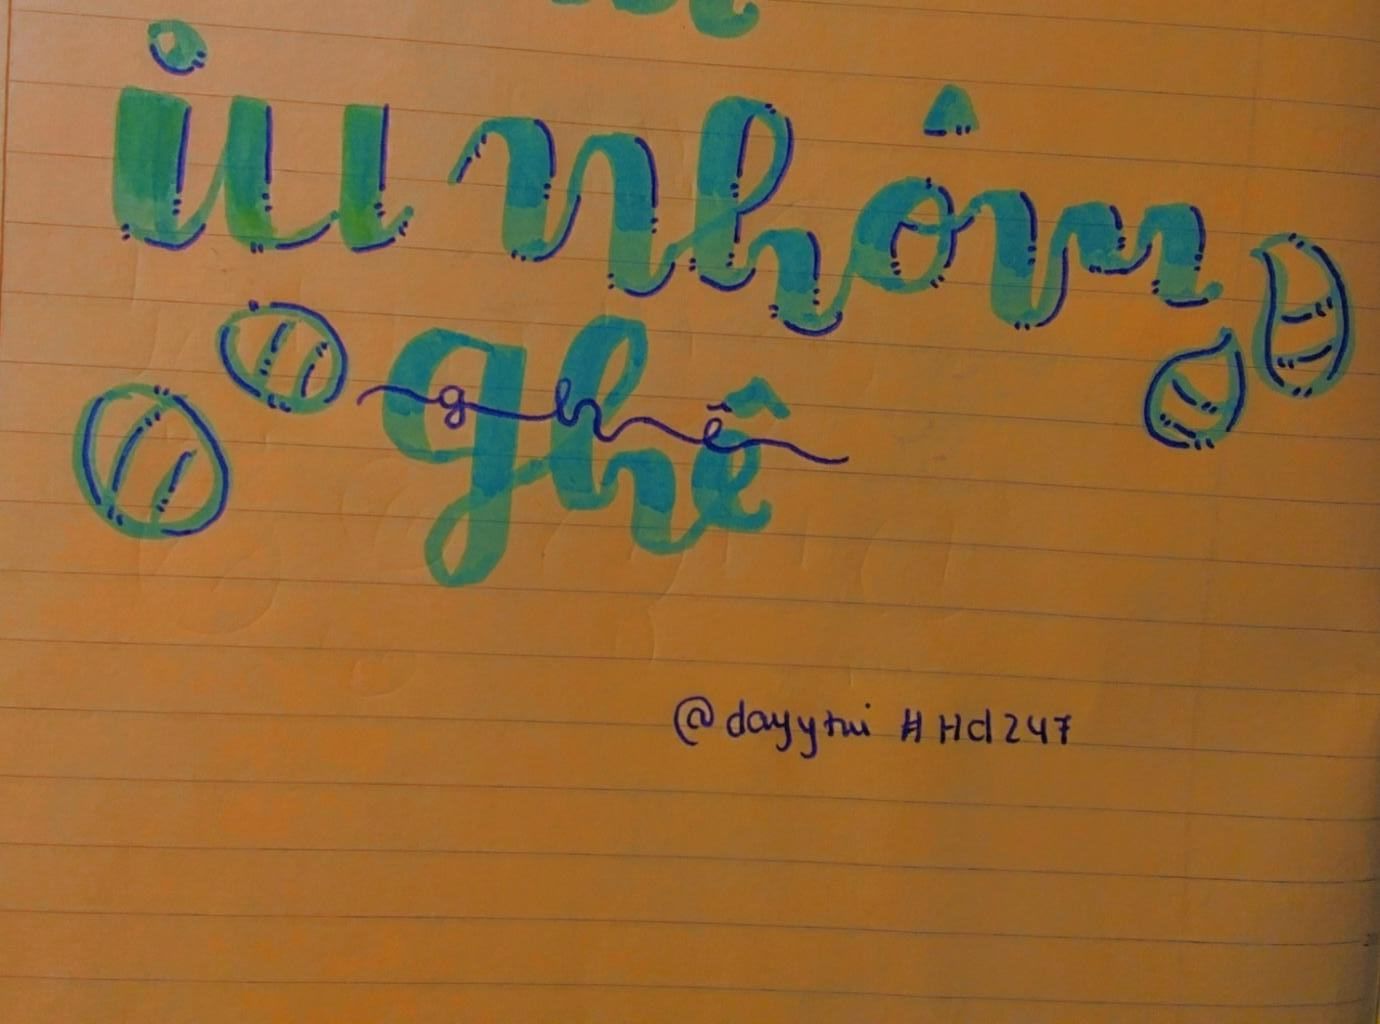 iu nhôm
ghê
ghê
@dayytui #Hd247